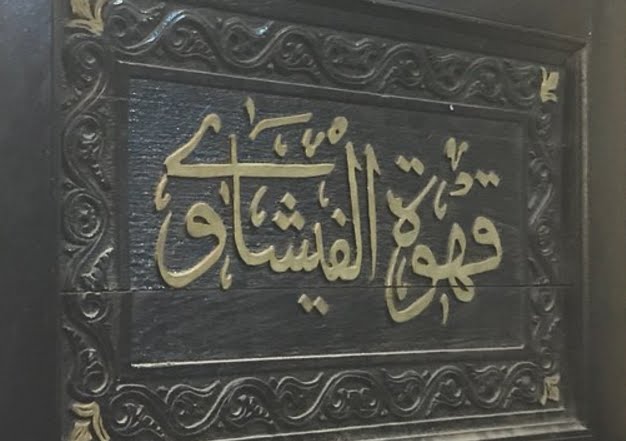 قهوة الفيشاوي